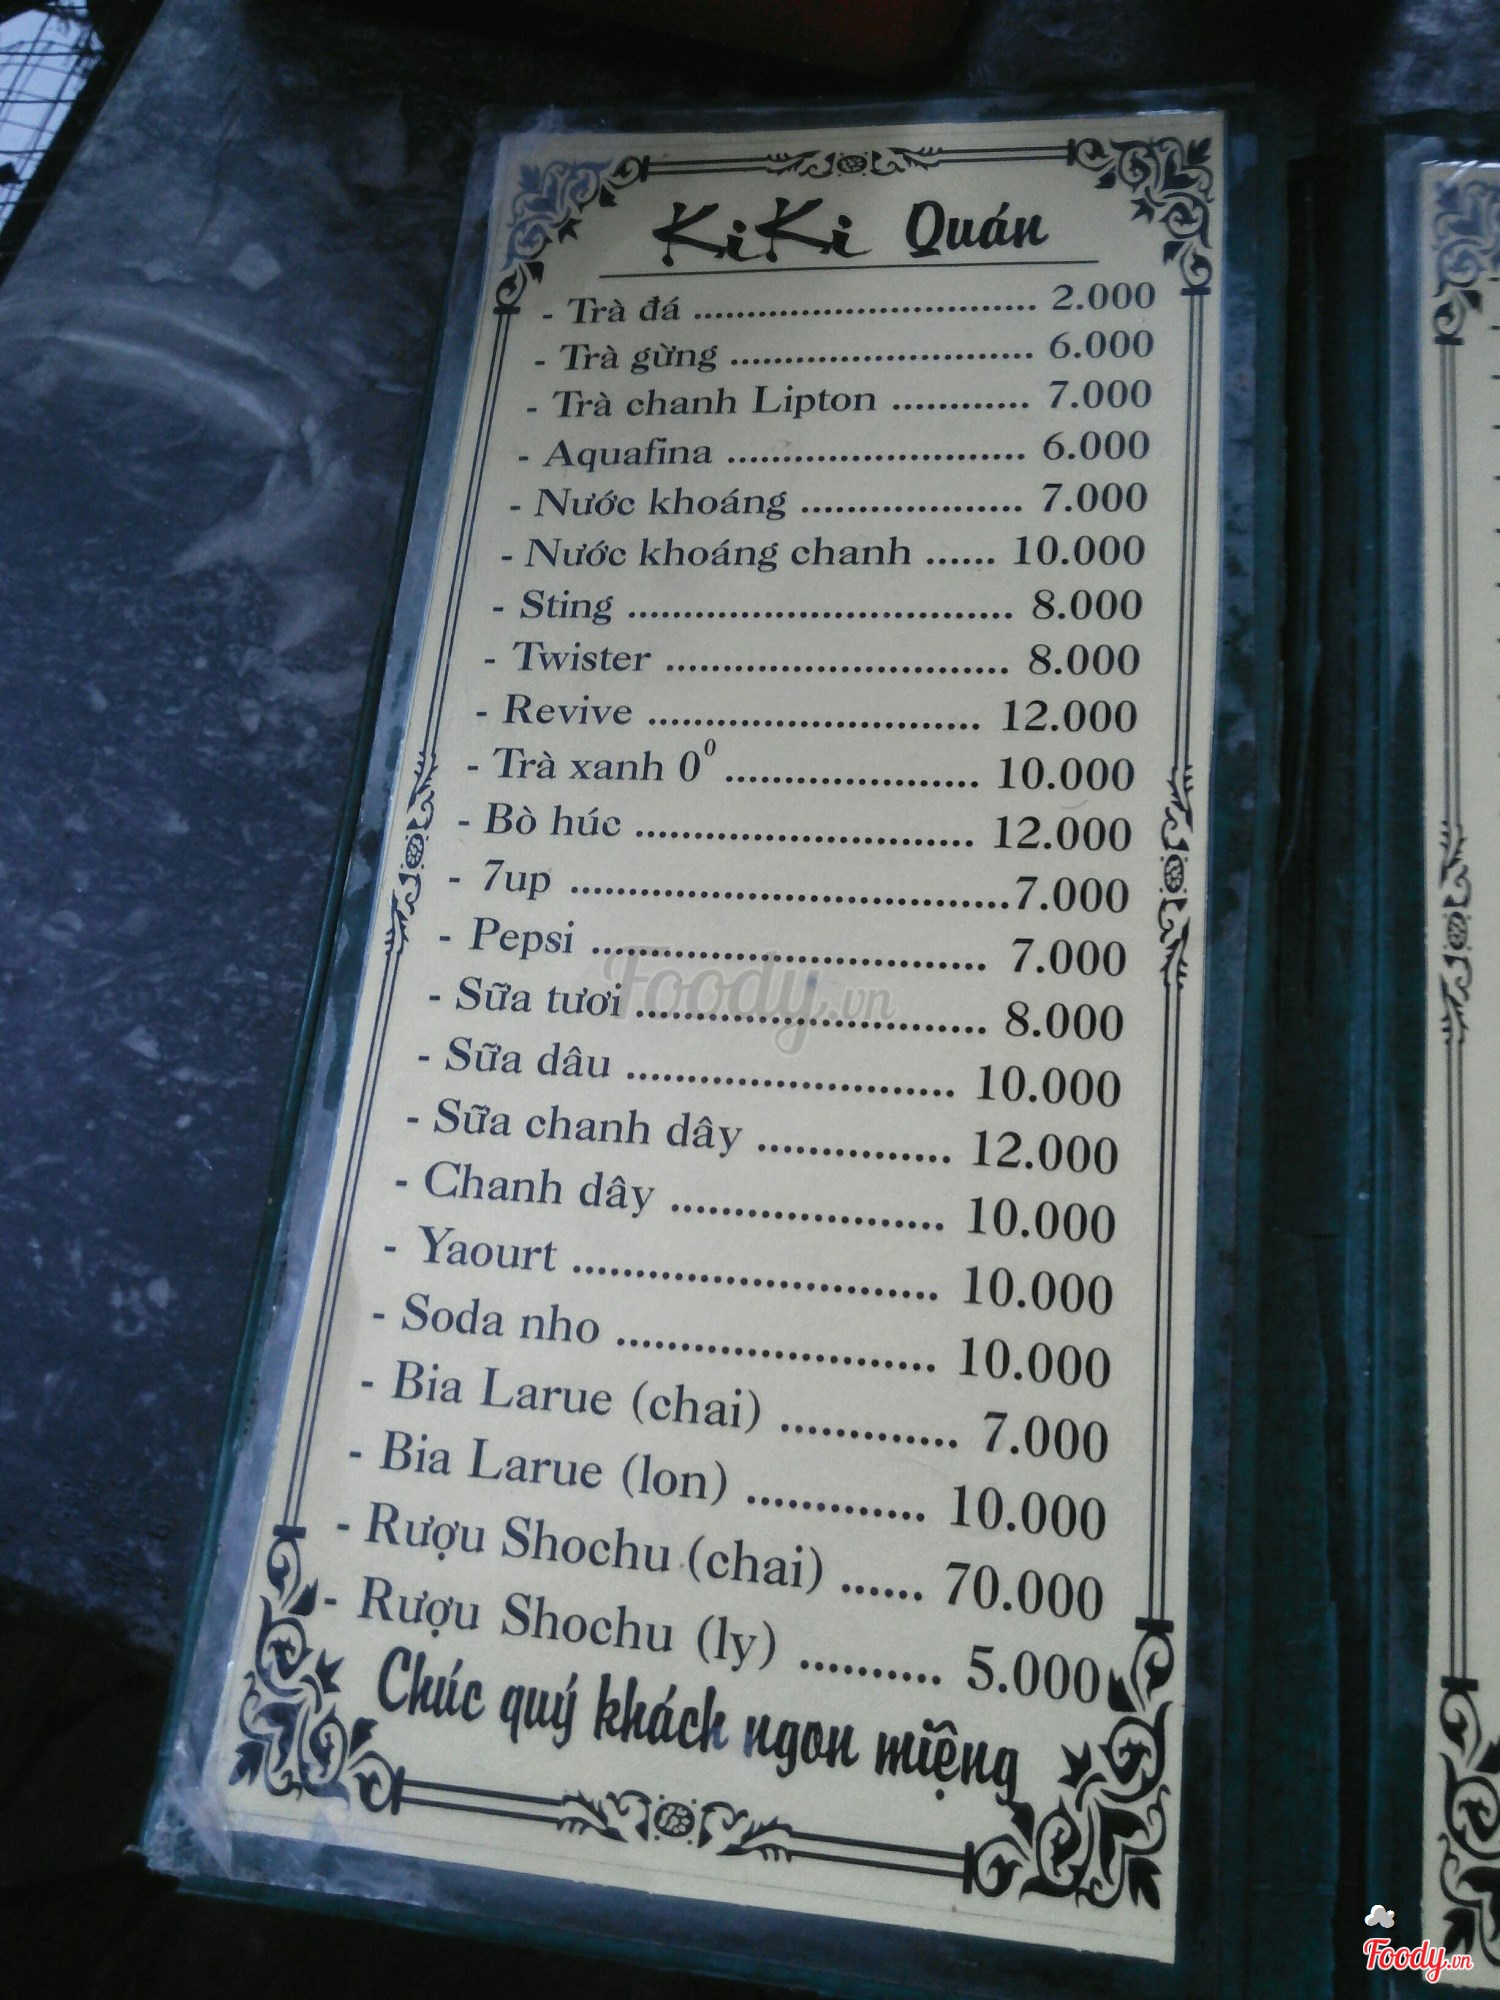 KiKi Quán
- Trà đá ................................ 2.000
- Trà gừng ............................ 6.000
- Trà chanh Lipton ............ 7.000
- Aquafina .......................... 6.000
- Nước khoáng .................... 7.000
- Nước khoáng chanh ...... 10.000
- Sting .................................. 8.000
- Twister .............................. 8.000
- Revive ............................ 12.000
- Trà xanh 0⁰ ...................... 10.000
- Bò húc ............................. 12.000
- 7up ......................................7.000
- Pepsi .................................. 7.000
- Sữa tươi ............................. 8.000
- Sữa dâu ........................... 10.000
- Sữa chanh dây ............... 12.000
- Chanh dây ..................... 10.000
- Yaourt ............................. 10.000
- Soda nho ........................ 10.000
- Bia Larue (chai) ............. 7.000
- Bia Larue (lon) ............. 10.000
- Rượu Shochu (chai) ...... 70.000
- Rượu Shochu (ly) .......... 5.000
Chúc quý khách ngon miệng
Foody.vn
Foody.vn